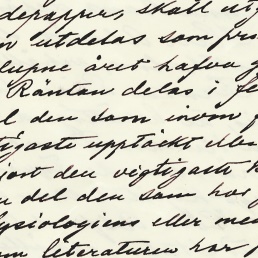 depapper, skall utg
n utdelas som pris
lupne året hafva g
Räntan delas i fe
l den som inom f
tigaste upptäckt eller
jort den vigtigaste k
n del den som har g
ysiologiens eller med
om literaturen har p